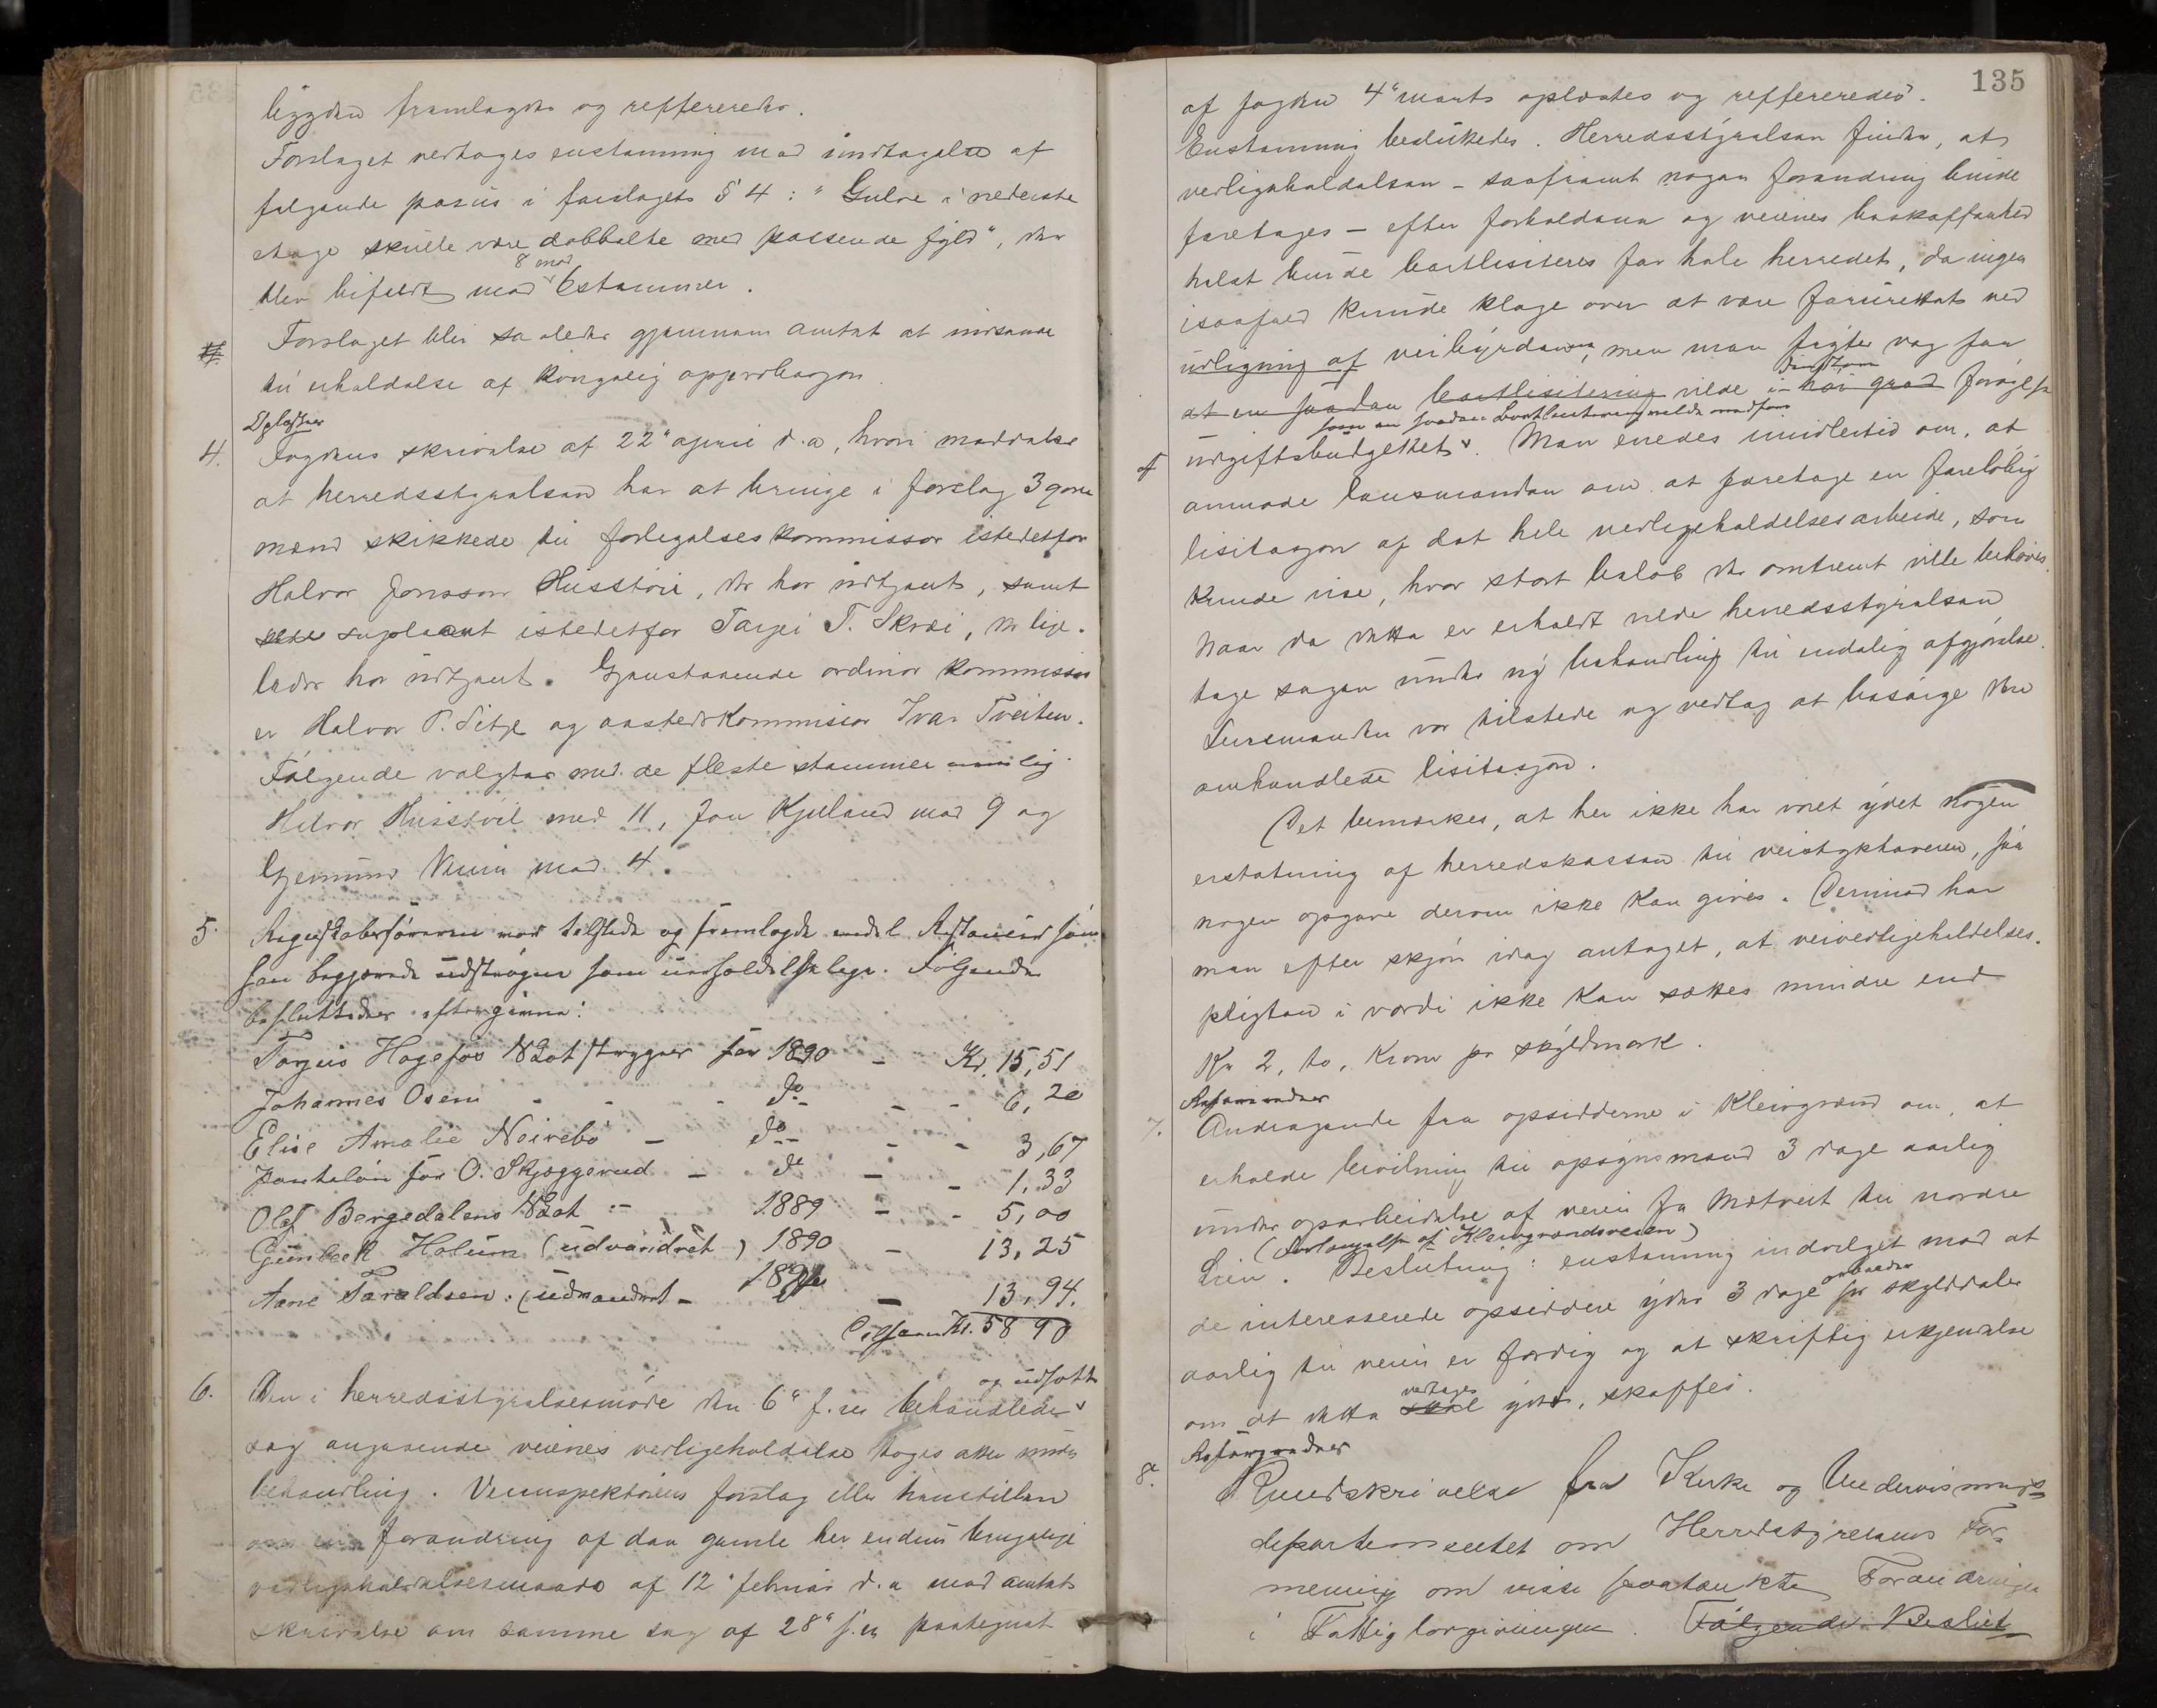 byggden framlagdes og reffereredes.
Forslaget vedtoges enstemmig med undtagelse af
følgende pasus i forslagets § 4: "Gulve i nederste
etage skulle være dobbelte med passende fyld", der
8 mod
blev bifaldt med 6 stemmer.
Forslaget blir saaledes gjennem amtet at indsende
til erholdelse af kongelig approbasjon.
Oplæstes
4. Fogdens skrivelse af 22" april d.a, hvori meddeles
at herredsstyrelsen har at bringe i forslag 3 gone
mænd skikkede til forlegelseskommissær istedetfor
Halvor Jonsson Husstøil, der har udtjent, samt
suplæant istedetfor Tarjei T. Skræi, der lige-
ledes har udtjent. Gjenstaaende ordinær kommissær
er Halvor P. Sitje og aastedskommissær Ivar Tveiten.
Følgende valgtes med de fleste stemmer nemlig
Halvor Husstøil med 11, Jon Kjeland med 9 og
Gjermund Vinin med 4.
5. Regnskabsføreren var tilstede og fremlagde endel Restancer som
han begjærede udstrøgne som uerholdelige. Følgende
besluttedes eftergivne:
Torjus Hagefos N Lot strygger for 1890 - Kr. 15,51
Johannes Osen - - - - do - - 6,20
Elise Amalie Neirebø - do - - 3,67
Pantelån for O. Skjeggerud - do - - 1,33
Olaf Bergedalens N Lot - 1889 - - 5,00
Gunbeck Holum (udvandret) 1890 - 13,25
Aane Taraldsen. (udvandret - 1890 - 13,94.
Tilsam Kr. 58 90
og udsatte
6. Den i herredsstyrelsesmøde den 6" f.m behandlede
sag angaaende veienes vedligeholdelse toges atter under
behandling. Veiinspektørens forslag eller henstillen
om en forandring af den gamle her endnu brugelige
vedligeholdelsesmaade af 12" februar d.a med amtets
skrivelse om samme sag af 28" s.m paategnet
135
af fogden 4" marts oplæstes og reffereredes.
Enstemmig besluttedes. Herredsstyrelsen finder, at
vedligeholdelsen - saafremt nogen forandring burde
foretages - efter forholdene og veienes beskaffenhed
helst burde bortlisiteres for hele herredet, da ingen
isaafald kunde klage over at være forurettet ved
udligning af veibyrderne, men man frygter dog for
den som
at en saadan bortlisitering vilde i høi grad forøgelse
som en saadan bortlisitering vilde medføre
udgiftsbudgettet. Man enedes imidlertid om, at
anmode lensmanden om at foretage en foreløbig
lisitasjon af det hele vedligeholdelsesarbeide, som
kunde vise, hvor stort beløb der omtrent ville behøves.
Naar da dette er erholdt vilde herredsstyrelsen
tage sagen under ny behandling til endelig afgjørelse.
Lensmanden var tilstede og vedtog at besørge den
omhandlede lisitasjon.
Det bemærkes, at her ikke har været ydet nogen
erstatning af herredskassen til veistykhaveren, saa
nogen opgave derom ikke kan gives. Derimod har
man efter skjøn idag antaget, at veivedligeholdelses-
pligten i værdi ikke kan sættes mindre end
Kr 2, to, kroner pr skyldmark.
Refereredes
7. Andragende fra opsidderne i Kleivgrænd om, at
erholde bevilning til opsynsmand 3 dage aarlig
under oparbeidelse af veien fra Mætveit til nordre
(Forlængelse af Kleivgrændsveien)
Lien. Beslutning: enstemmig indvilget mod at
arbeider
de interesserede opsiddere yder 3 dage pr skylddaler
aarlig til veien er færdig og at skriftlig erkjendelse
vedtages
om at dette skal ydes, skaffes.
Refereredes
8. Rundskrivelse fra Kirke og Undervisnings-
departementet om Herredstyrelsens For-
mening om visse paatænkte Forandringer
i Fattiglovgivningen. Følgende Beslut